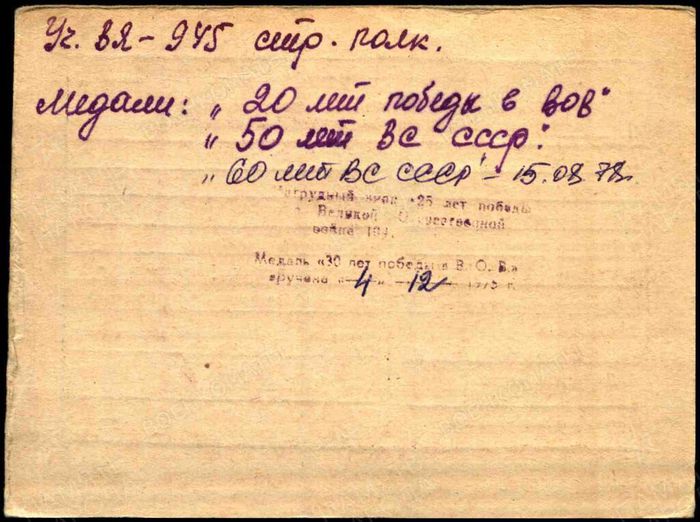 Уч. ВЯ - 945 стр. полк.
Медали: „20 лет победы в ВОВ"
„50 лет ВС СССР".
„60 лет ВС СССР" - 15.08.78г.
Нагрудный знак «25 лет победы
в Великой Отечественной
войне 194
Медаль «30 лет победы в В. О. В.»
вручена «4» 12 1975 г.